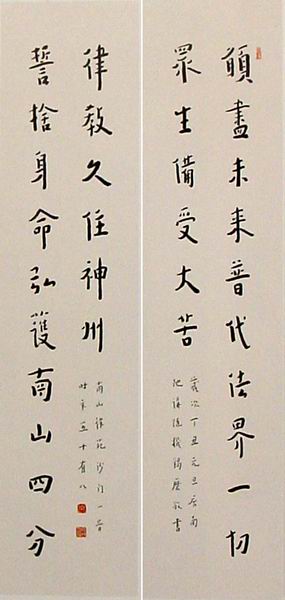 願盡未来普代法界一切
眾生備受大苦
歲次丁丑元旦居南
陀講隨機羯磨敬書
誓捨身命弘護南山四分
律教久住神州
南山律苑沙門一音
時年五十有八